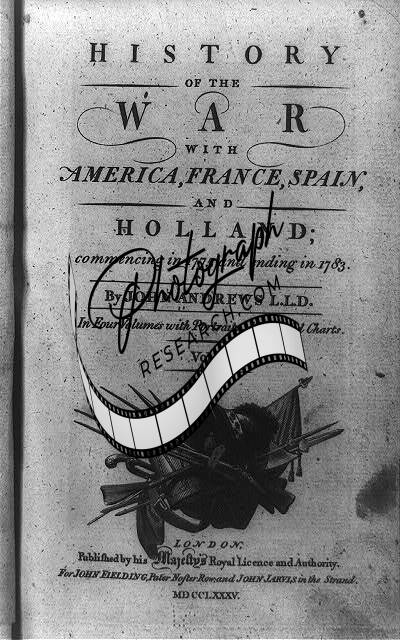 HISTORY
OF THE
WAR
WITH
AMERICA, FRANCE, SPAIN,
AND
HOLLAND;
commencing in 1775 and ending in 1783.
By JOHN ANDREWS L.L.D.
In Four Volumes with Portraits Charts.
Photograph
RESEARCH.COM
LONDON,
Published by his Majesty's Royal Licence and Authority.
For JOHN FIELDING, Pater Noster Row, and JOHN JARVIS in the Strand.
MDCCLXXXV.